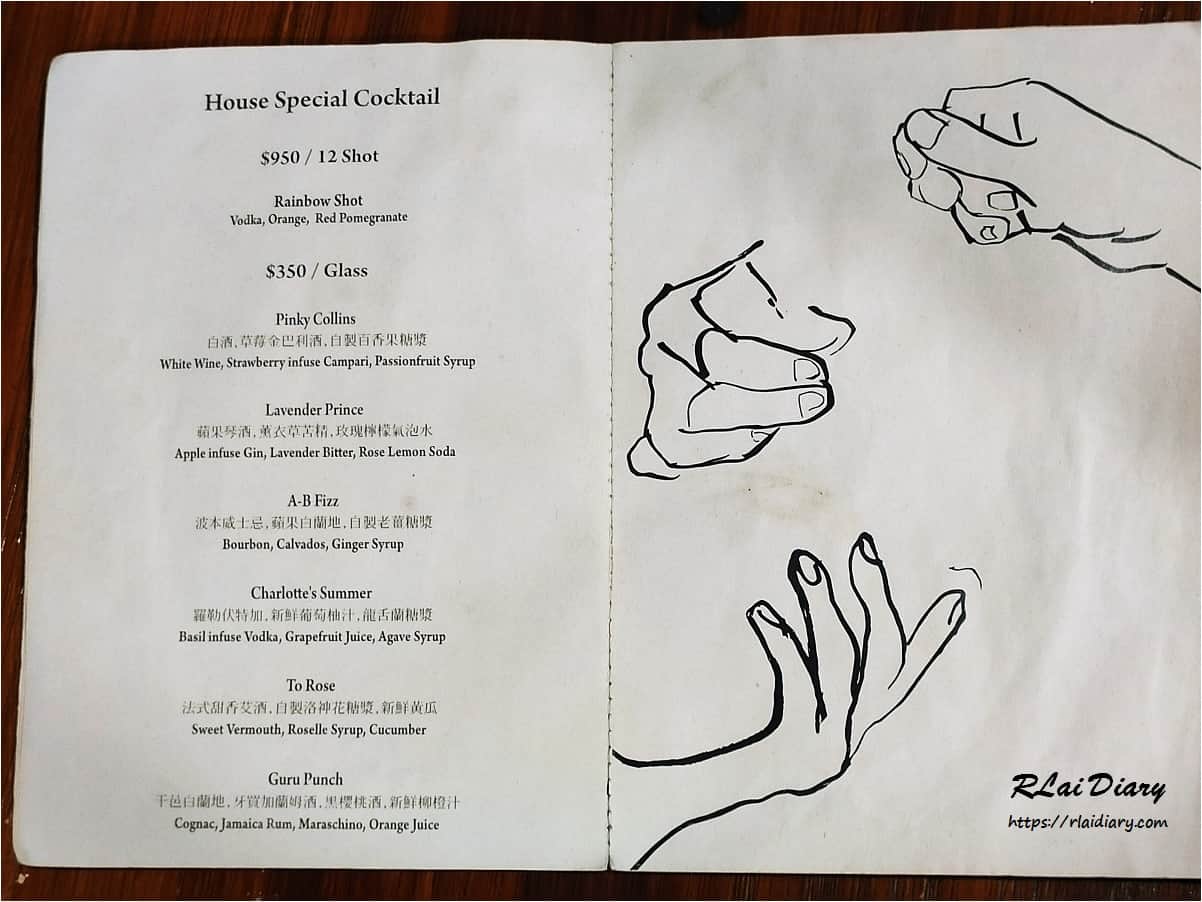 House Special Cocktail
$950 / 12 Shot
Rainbow Shot
Vodka, Orange, Red Pomegranate
$350 / Glass
Pinky Collins
白酒,草莓金巴利酒,自製百香果糖漿
White Wine, Strawberry infuse Campari, Passionfruit Syrup
Lavender Prince
蘋果琴酒,薰衣草苦精,玫瑰檸檬氣泡水
Apple infuse Gin, Lavender Bitter, Rose Lemon Soda
A-B Fizz
波本威士忌,蘋果白蘭地,自製老薑糖漿
Bourbon, Calvados, Ginger Syrup
Charlotte's Summer
羅勒伏特加,新鮮葡萄柚汁,龍舌蘭糖漿
Basil infuse Vodka, Grapefruit Juice, Agave Syrup
To Rose
法式甜香艾酒,自製洛神花糖漿,新鮮黃瓜
Sweet Vermouth, Roselle Syrup, Cucumber
Guru Punch
干邑白蘭地,牙買加蘭姆酒,黑櫻桃酒,新鮮柳橙汁
Cognac, Jamaica Rum, Maraschino, Orange Juice
RLai Diary
https://rlaidiary.com